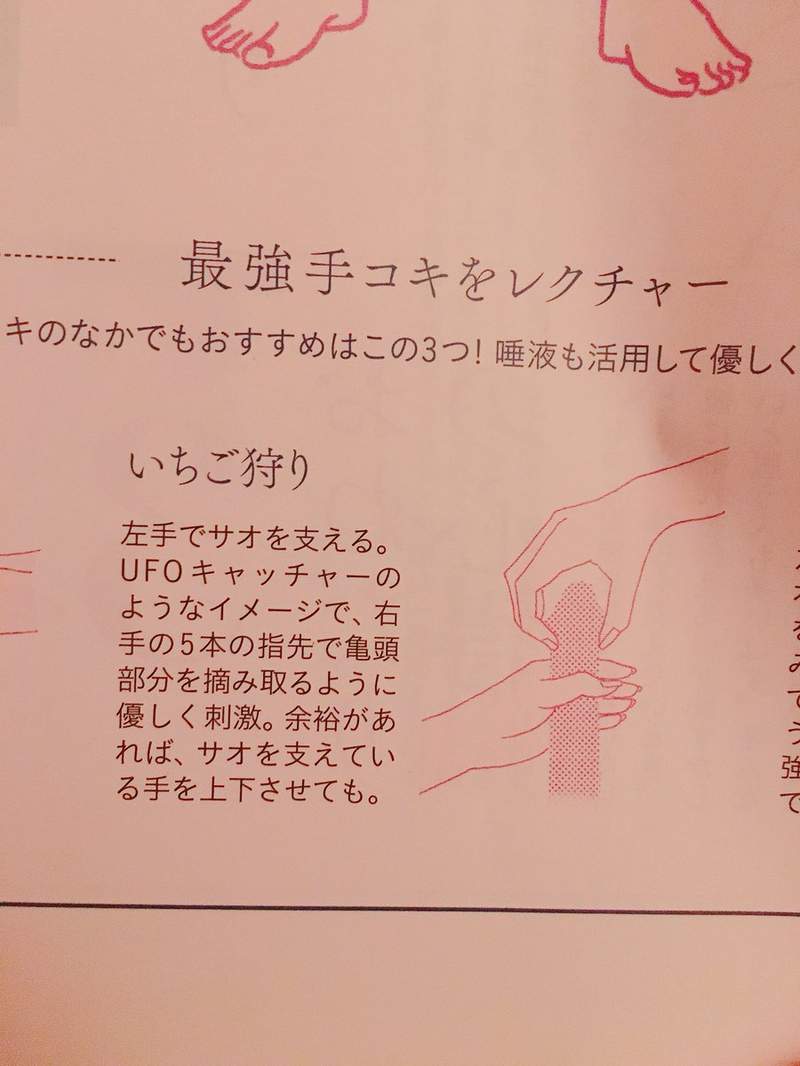 最強手コキをレクチャー
キのなかでもおすすめはこの3つ！唾液も活用して優しく
いちご狩り
左手でサオを支える。
UFOキャッチャーの
ようなイメージで、右
手の5本の指先で亀頭
部分を摘み取るように
優しく刺激。余裕があ
れば、サオを支えてい
る手を上下させても。